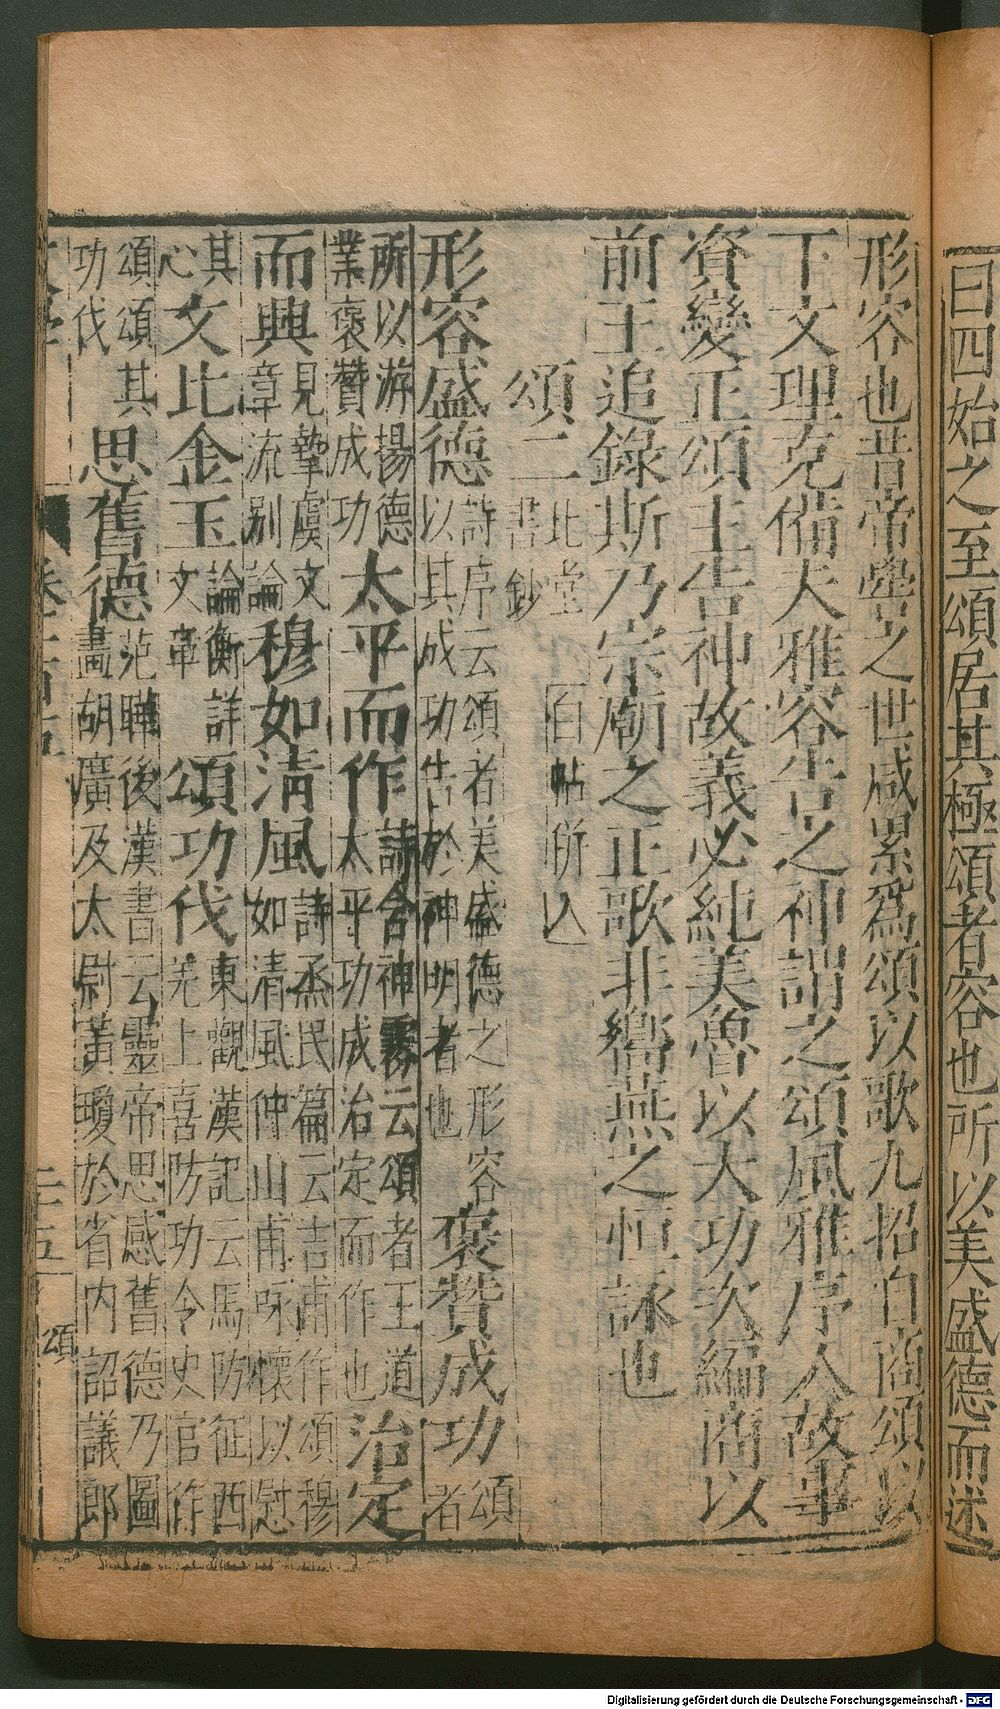 曰四始之至頌居其極頌者容也所以美盛德而述
形容也昔帝嚳之世咸累爲頌以歌九招自商頌以
下文理克備夫雅容告之神謂之頌風雅序人故事
資變正頌主告神故義必純美魯以大功次編商以
前王追錄斯乃宗廟之正歌非嚮燕之恒詠也
頌二 北堂書鈔 白帖附入
形容盛德 詩序云頌者美盛德之形容以其成功告於神明者也 褒贊成功 頌者
所以游揚德業褒贊成功 太平而作 詩含神霧云頌者王道太平功成治定而作也 治定
而興 見摯虞文章流别論 穆如清風 詩烝民篇云吉甫作頌穆如清風仲山甫咏懷以慰
其心 文比金玉 論衡詳文章 頌功伐 東觀漢記云馬防征西羌上喜防功令史官作
頌頌其功伐 思舊德 范曄後漢書云靈帝思感舊德乃圖畫胡廣及太尉黃瓊於省内詔議郎
卷一百五
二十五
頌
Digitalisierung gefördert durch die Deutsche Forschungsgemeinschaft - DFG